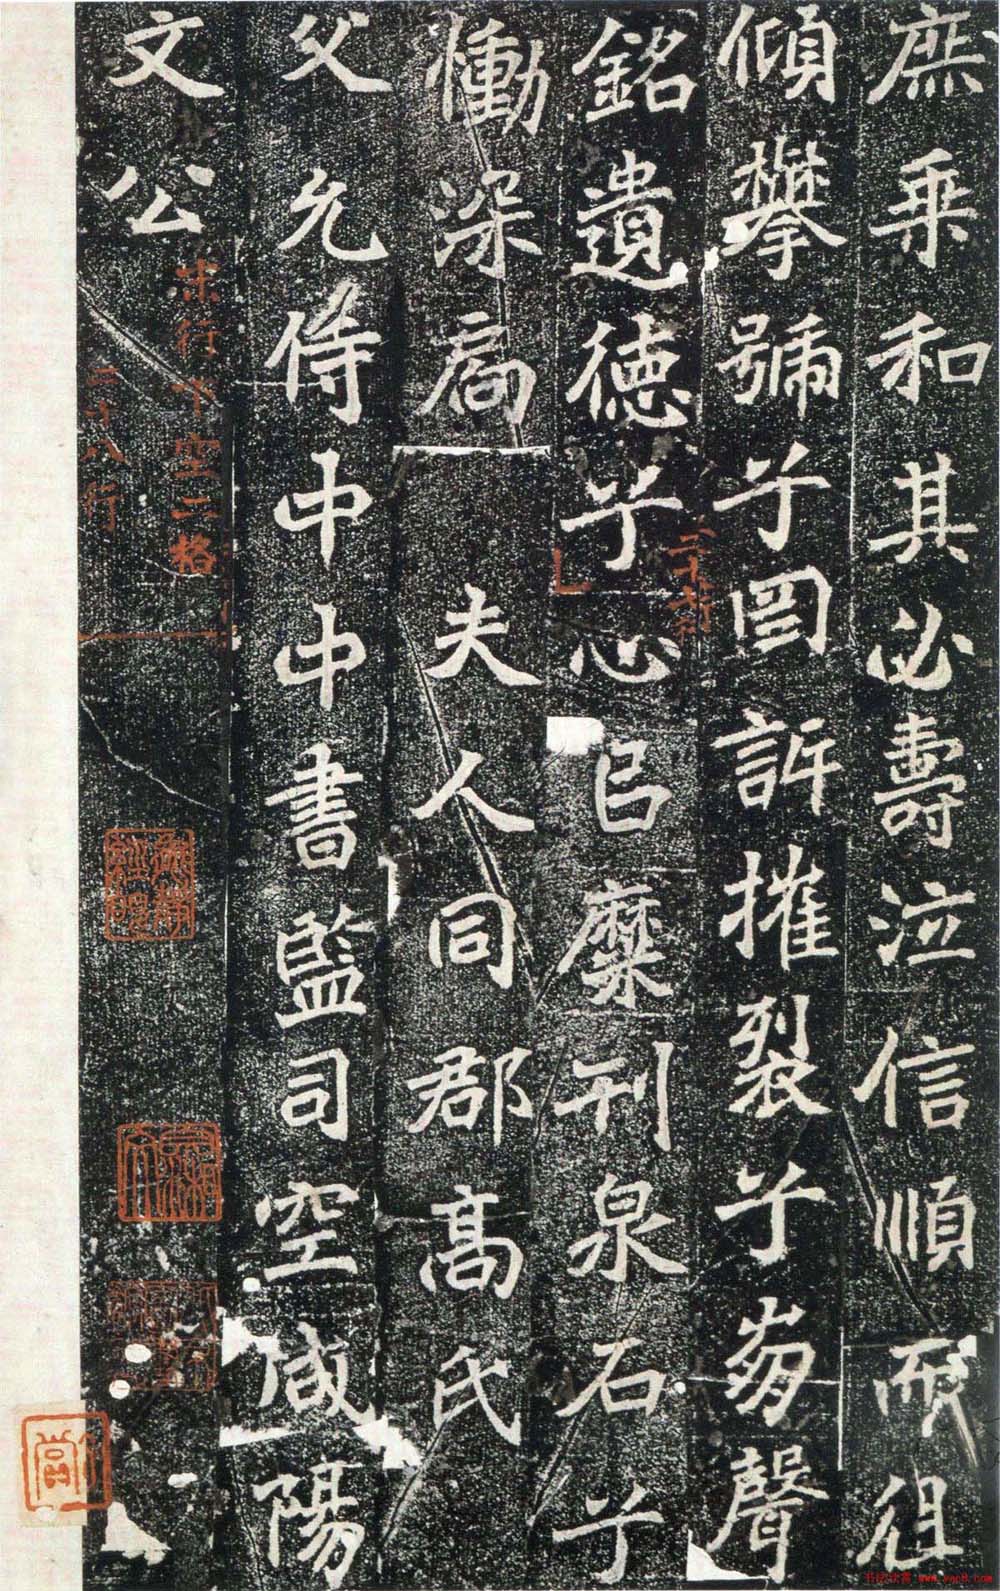 庶乘和其必壽泣信順而徂
傾攀號兮罔訴摧裂兮崩聲
銘遺徳兮心已糜刊泉石兮
二十七行
慟深扃 夫人同郡髙氏
父允侍中中書監司空咸陽
文公
末行下空二格
二十八行
书法欣赏 www.yac8.com